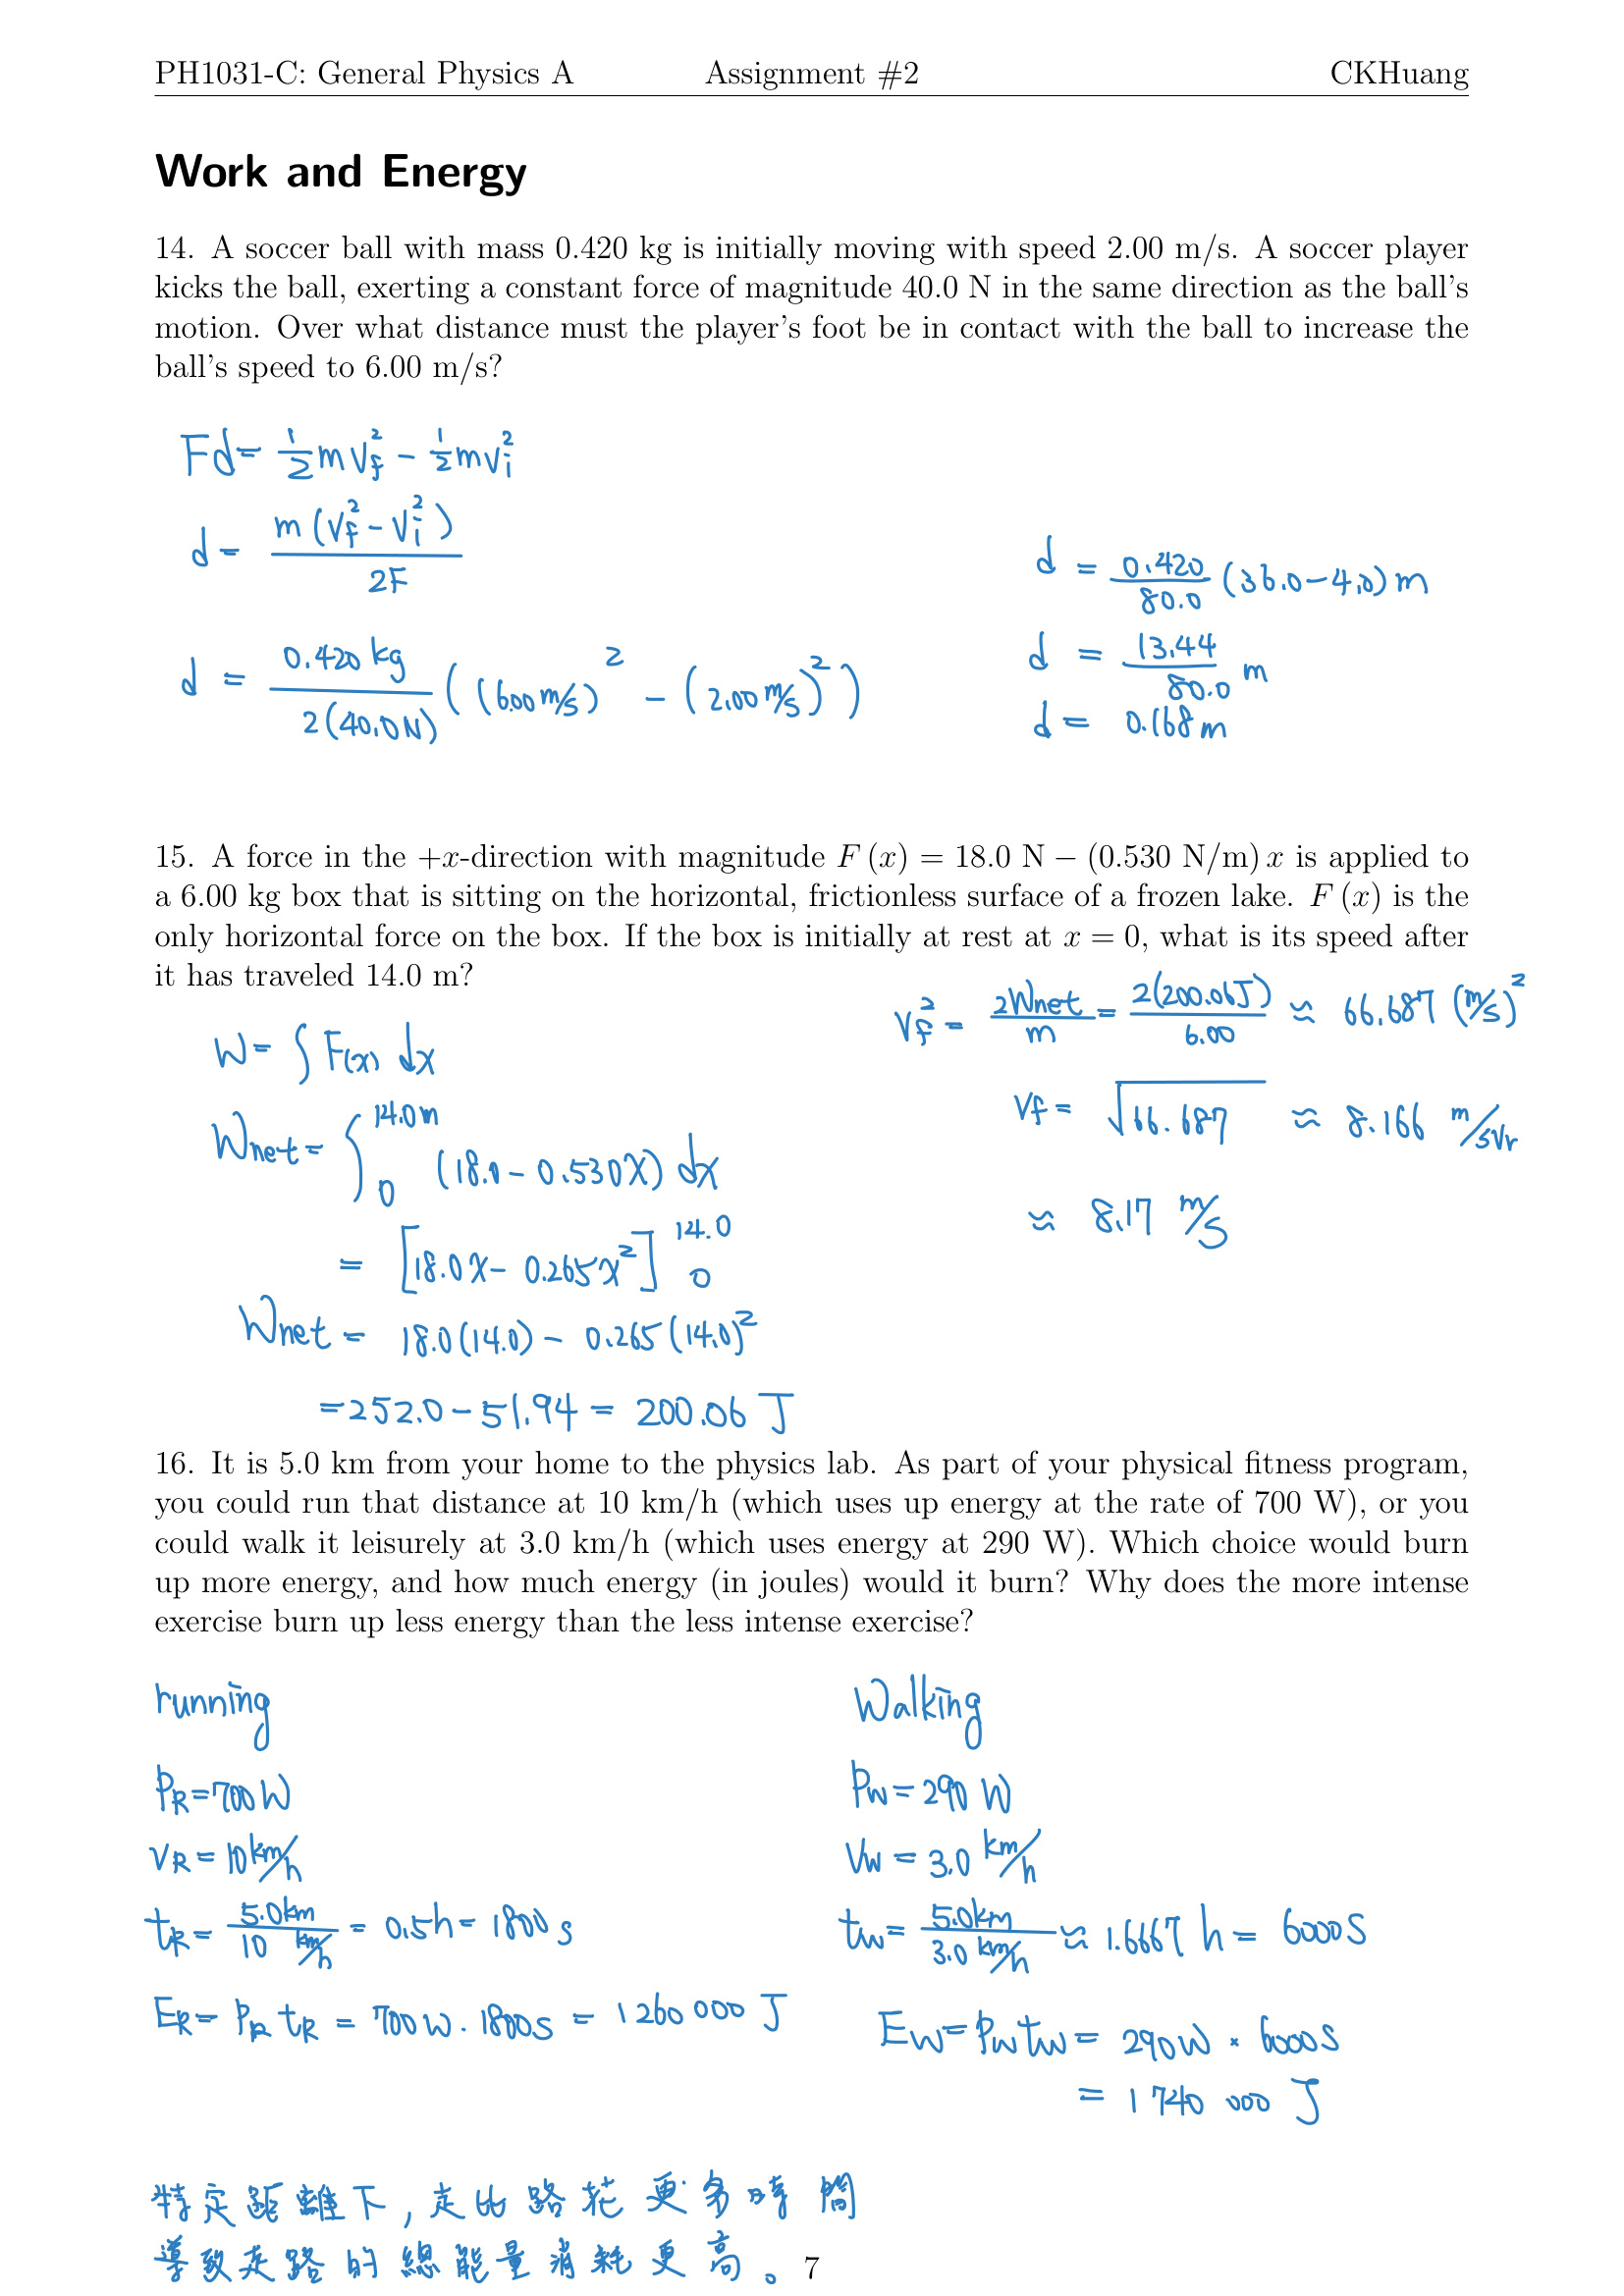 PH1031-C: General Physics A Assignment #2 CKHuang
Work and Energy
14. A soccer ball with mass 0.420 kg is initially moving with speed 2.00 m/s. A soccer player
kicks the ball, exerting a constant force of magnitude 40.0 N in the same direction as the ball's
motion. Over what distance must the player's foot be in contact with the ball to increase the
ball's speed to 6.00 m/s?
Fd = 1/2 m v_f^2 - 1/2 m v_i^2
d = m(v_f^2 - v_i^2) / 2F
d = 0.420 kg / 2(40.0N) ((6.00 m/s)^2 - (2.00 m/s)^2)
d = 0.420/80.0 (36.0-4.0) m
d = 13.44/80.0 m
d = 0.168 m
15. A force in the +x-direction with magnitude F(x) = 18.0 N − (0.530 N/m) x is applied to
a 6.00 kg box that is sitting on the horizontal, frictionless surface of a frozen lake. F(x) is the
only horizontal force on the box. If the box is initially at rest at x = 0, what is its speed after
it has traveled 14.0 m?
W = ∫ F(x) dx
Wnet = ∫_0^14.0m (18.0 - 0.530x) dx
= [18.0x - 0.265x^2]_0^14.0
Wnet = 18.0(14.0) - 0.265(14.0)^2
= 252.0 - 51.94 = 200.06 J
v_f^2 = 2Wnet/m = 2(200.06J)/6.00 ≈ 66.687 (m/s)^2
v_f = √66.687 ≈ 8.166 m/s
≈ 8.17 m/s
16. It is 5.0 km from your home to the physics lab. As part of your physical fitness program,
you could run that distance at 10 km/h (which uses up energy at the rate of 700 W), or you
could walk it leisurely at 3.0 km/h (which uses energy at 290 W). Which choice would burn
up more energy, and how much energy (in joules) would it burn? Why does the more intense
exercise burn up less energy than the less intense exercise?
running
P_R = 700 W
v_R = 10 km/h
t_R = 5.0km / 10 km/h = 0.5h = 1800 s
E_R = P_R t_R = 700 W · 1800 s = 1 260 000 J
Walking
P_W = 290 W
V_W = 3.0 km/h
t_W = 5.0km / 3.0 km/h ≈ 1.6667 h = 6000 s
E_W = P_W t_W = 290 W · 6000 s
= 1 740 000 J
特定距離下,走比路花更多時間
導致走路的總能量消耗更高。
7